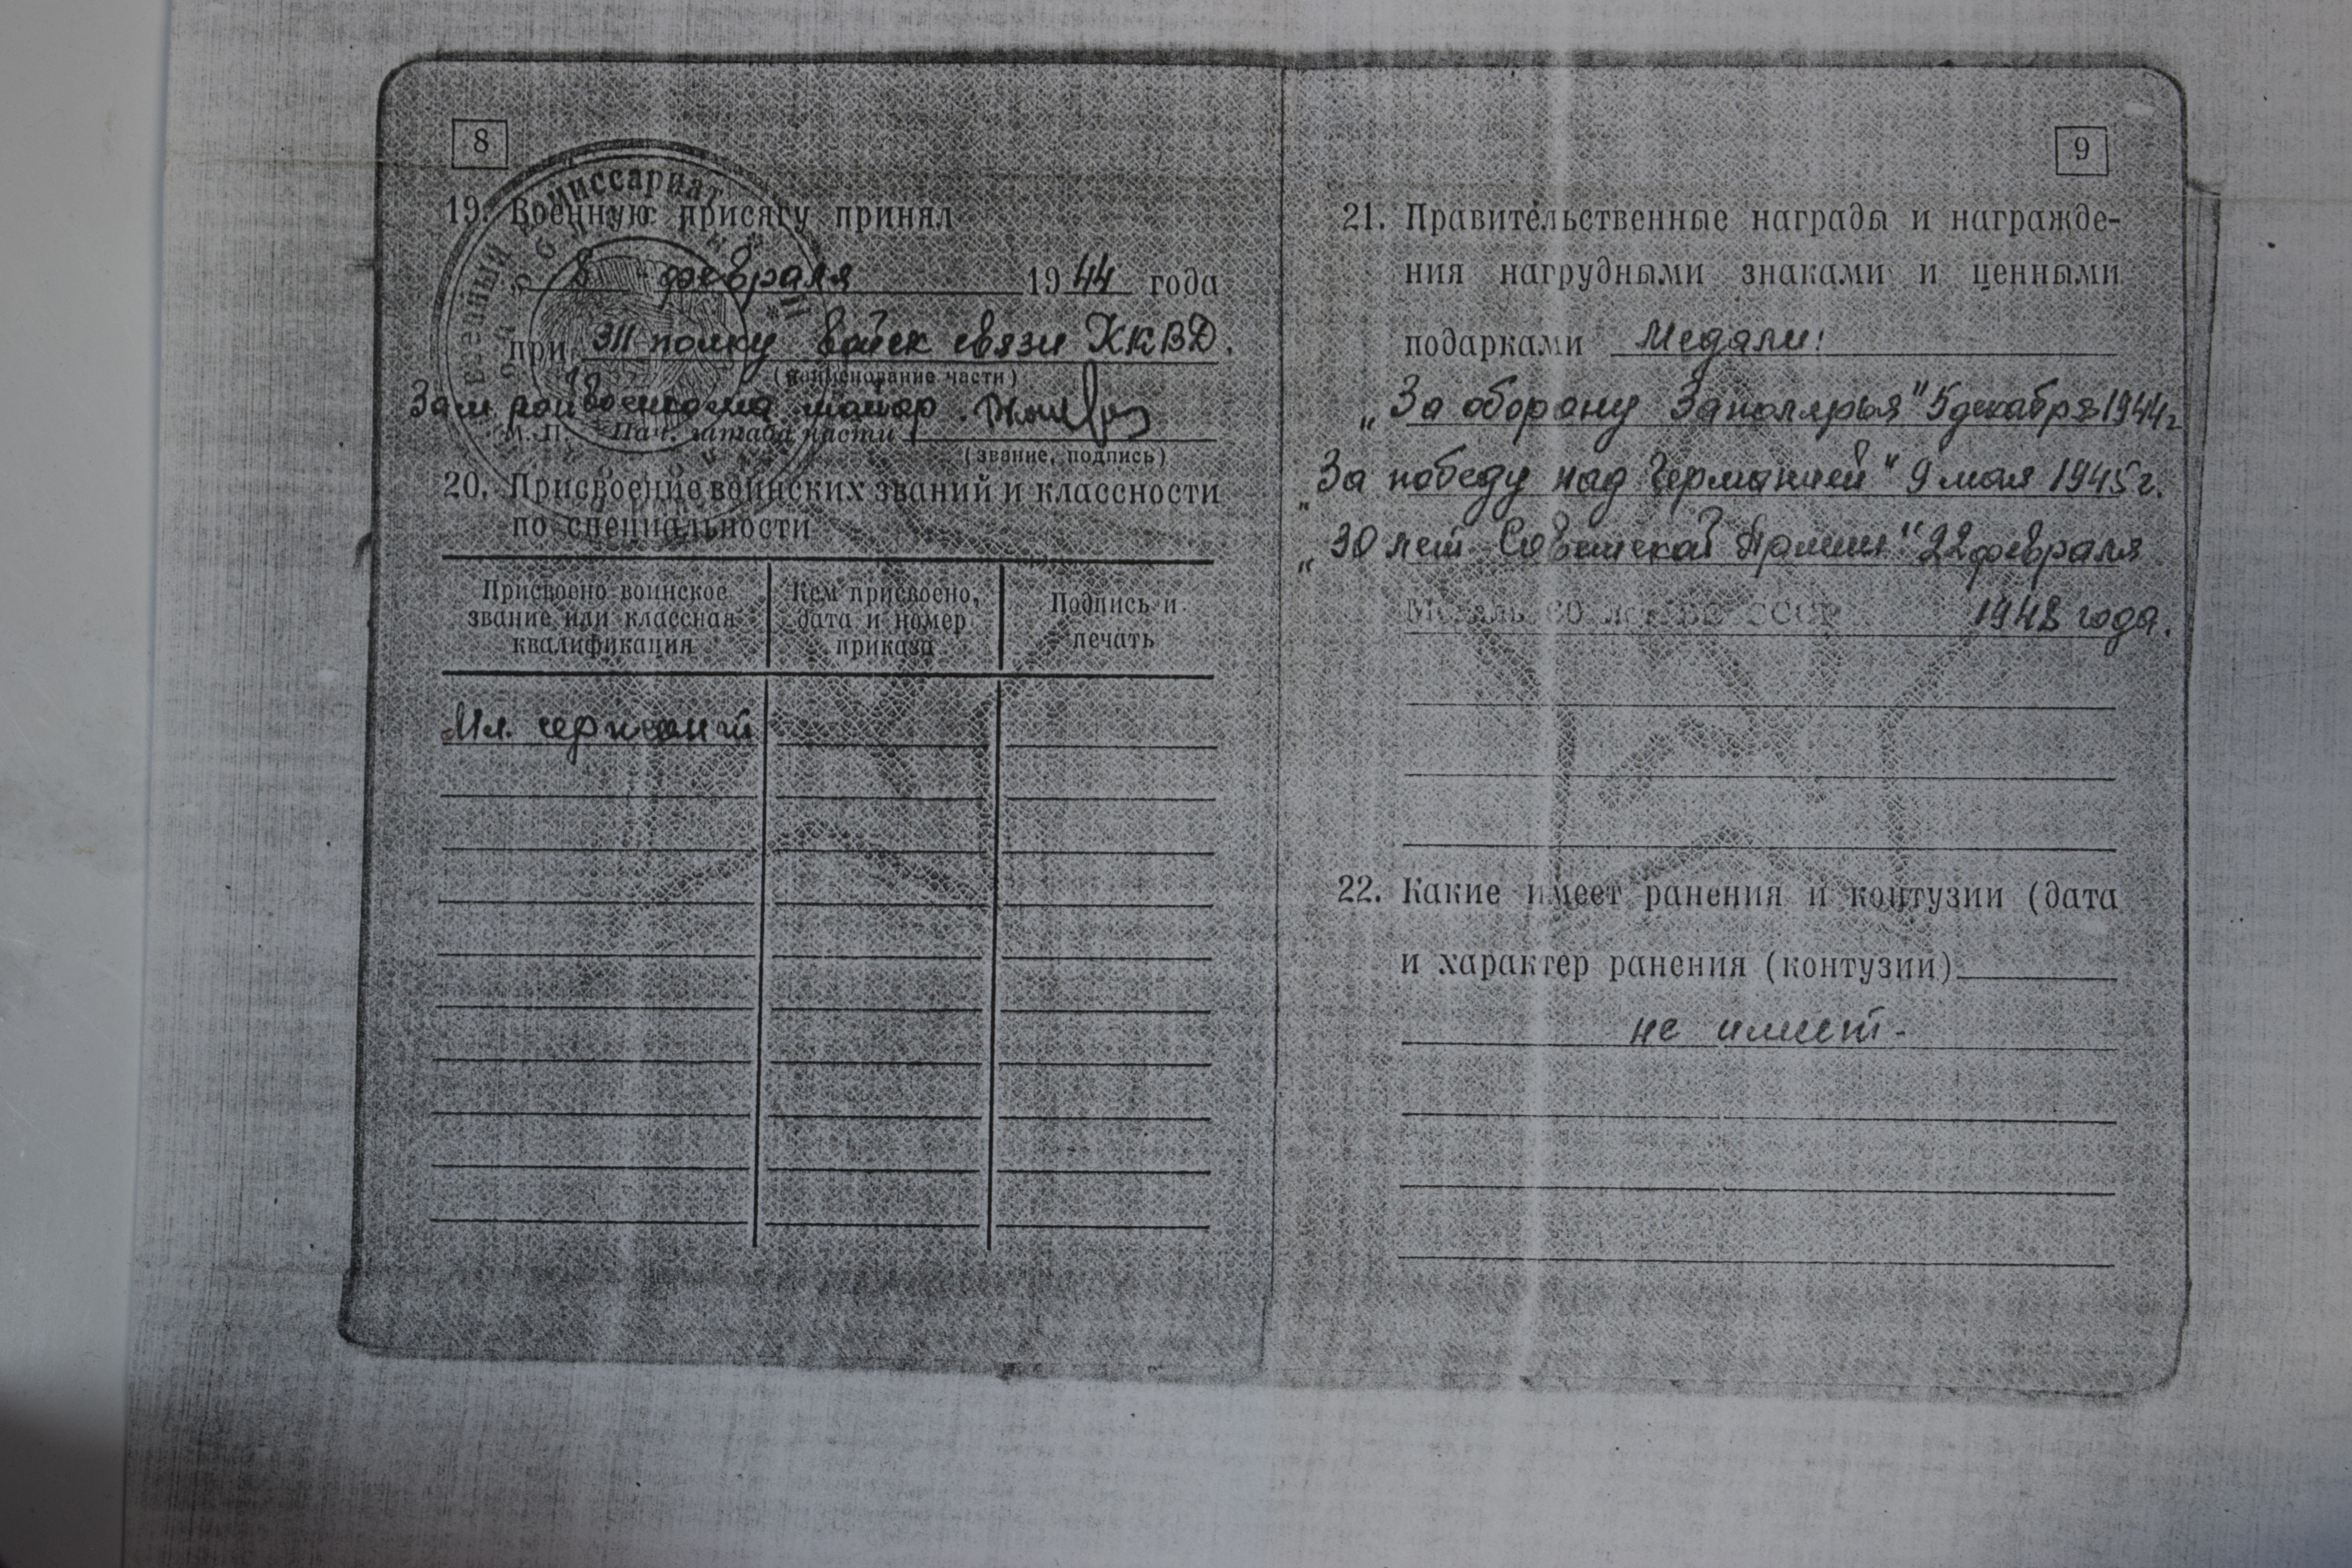 8
19. Военную присягу принял
8 февраля 1944 года
при 311 полку войск связи НКВД.
(наименование части)
Зам райвоенкома майор
М. П. Нач. штаба части
(звание, подпись)
20. Присвоение воинских званий и классности
по специальности
Присвоено воинское
звание или классная
квалификация
Кем присвоено,
дата и номер
приказа
Подпись и
печать
Мл. сержант
комиссариат
9
21. Правительственные награды и награжде-
ния нагрудными знаками и ценными
подарками Медали:
„За оборону Заполярья" 5 декабря 1944г
„За победу над Германией" 9 мая 1945г.
„30 лет Советской Армии" 22 февраля
1948 года.
22. Какие имеет ранения и контузии (дата
и характер ранения (контузии)
не имеет-